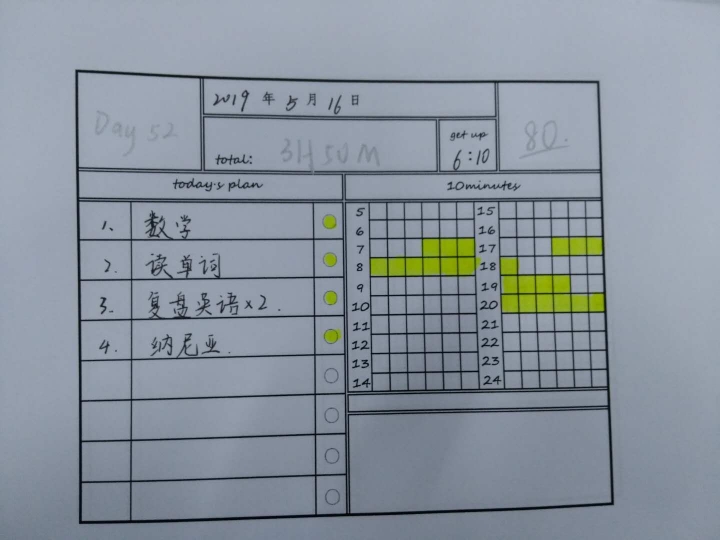 2019 年 5 月 16 日
Day 52
total: 3H 50 M
get up
6:10
80.
today's plan
10minutes
1、 数学
2. 读单词
3. 复盘英语×2.
4. 纳尼亚.
5 15
6 16
7 17
8 18
9 19
10 20
11 21
12 22
13 23
14 24